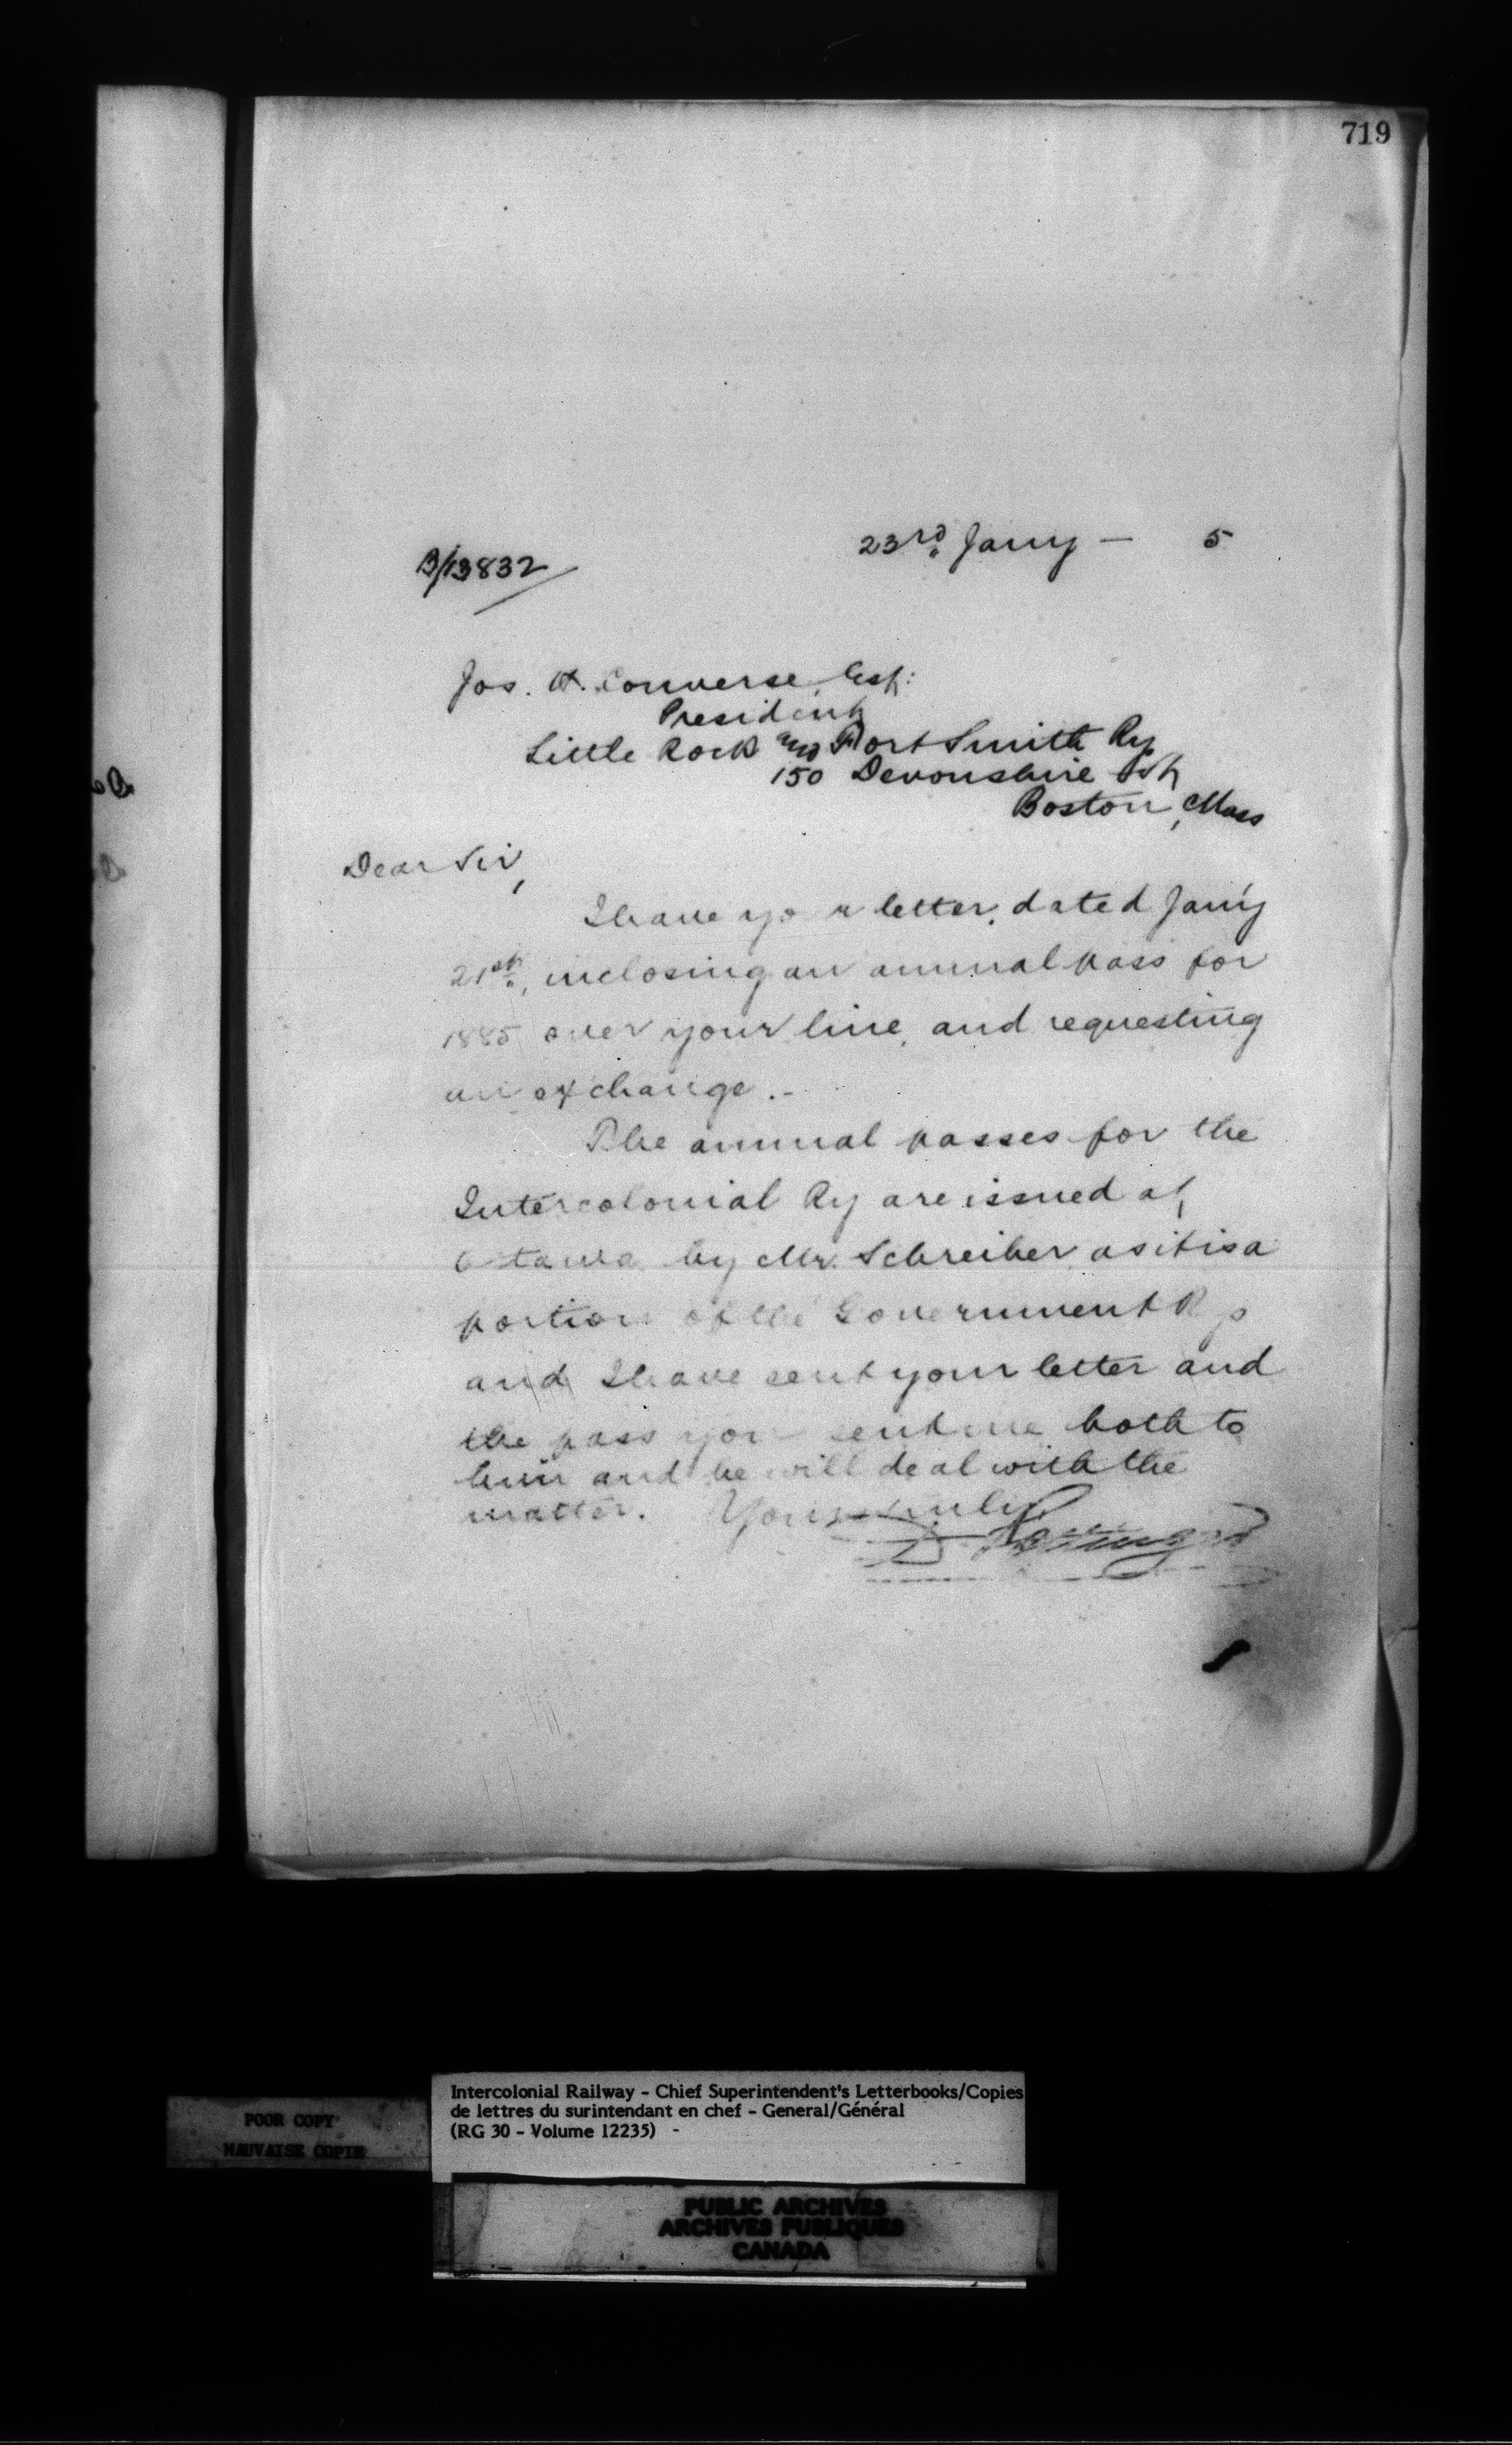 719
23rd Jany — 5
B/13832
Jos. H. Converse, Esq:
President
Little Rock and Fort Smith Ry
150 Devonshire St
Boston, Mass
Dear Sir,
I have your letter, dated Jan'y
21st, inclosing an annual pass for
1885 over your line, and requesting
an exchange.-
The annual passes for the
Intercolonial Ry are issued at
Ottawa by Mr. Schreiber as it is a
portion of the Government Rys
and I have sent your letter and
the pass you sent me both to
him and he will deal with the
matter. Yours truly
D Pottinger
POOR COPY
MAUVAISE COPIE
Intercolonial Railway - Chief Superintendent's Letterbooks/Copies
de lettres du surintendant en chef - General/Général
(RG 30 - Volume 12235) -
PUBLIC ARCHIVES
ARCHIVES PUBLIQUES
CANADA